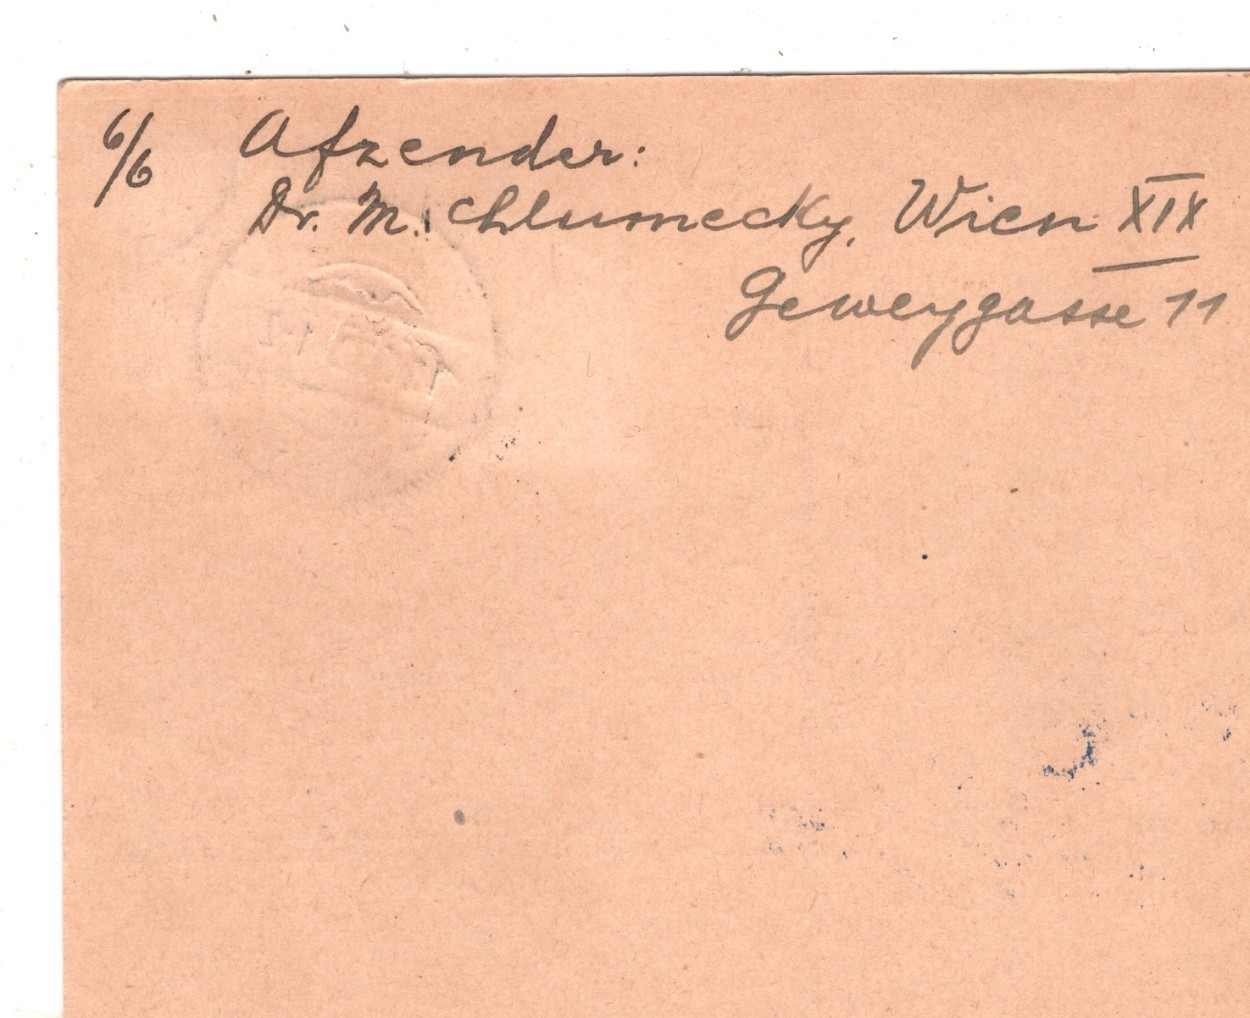 6/6 Afzender:
Dr. M. Chlumecky, Wien XIX
Geweygasse 11